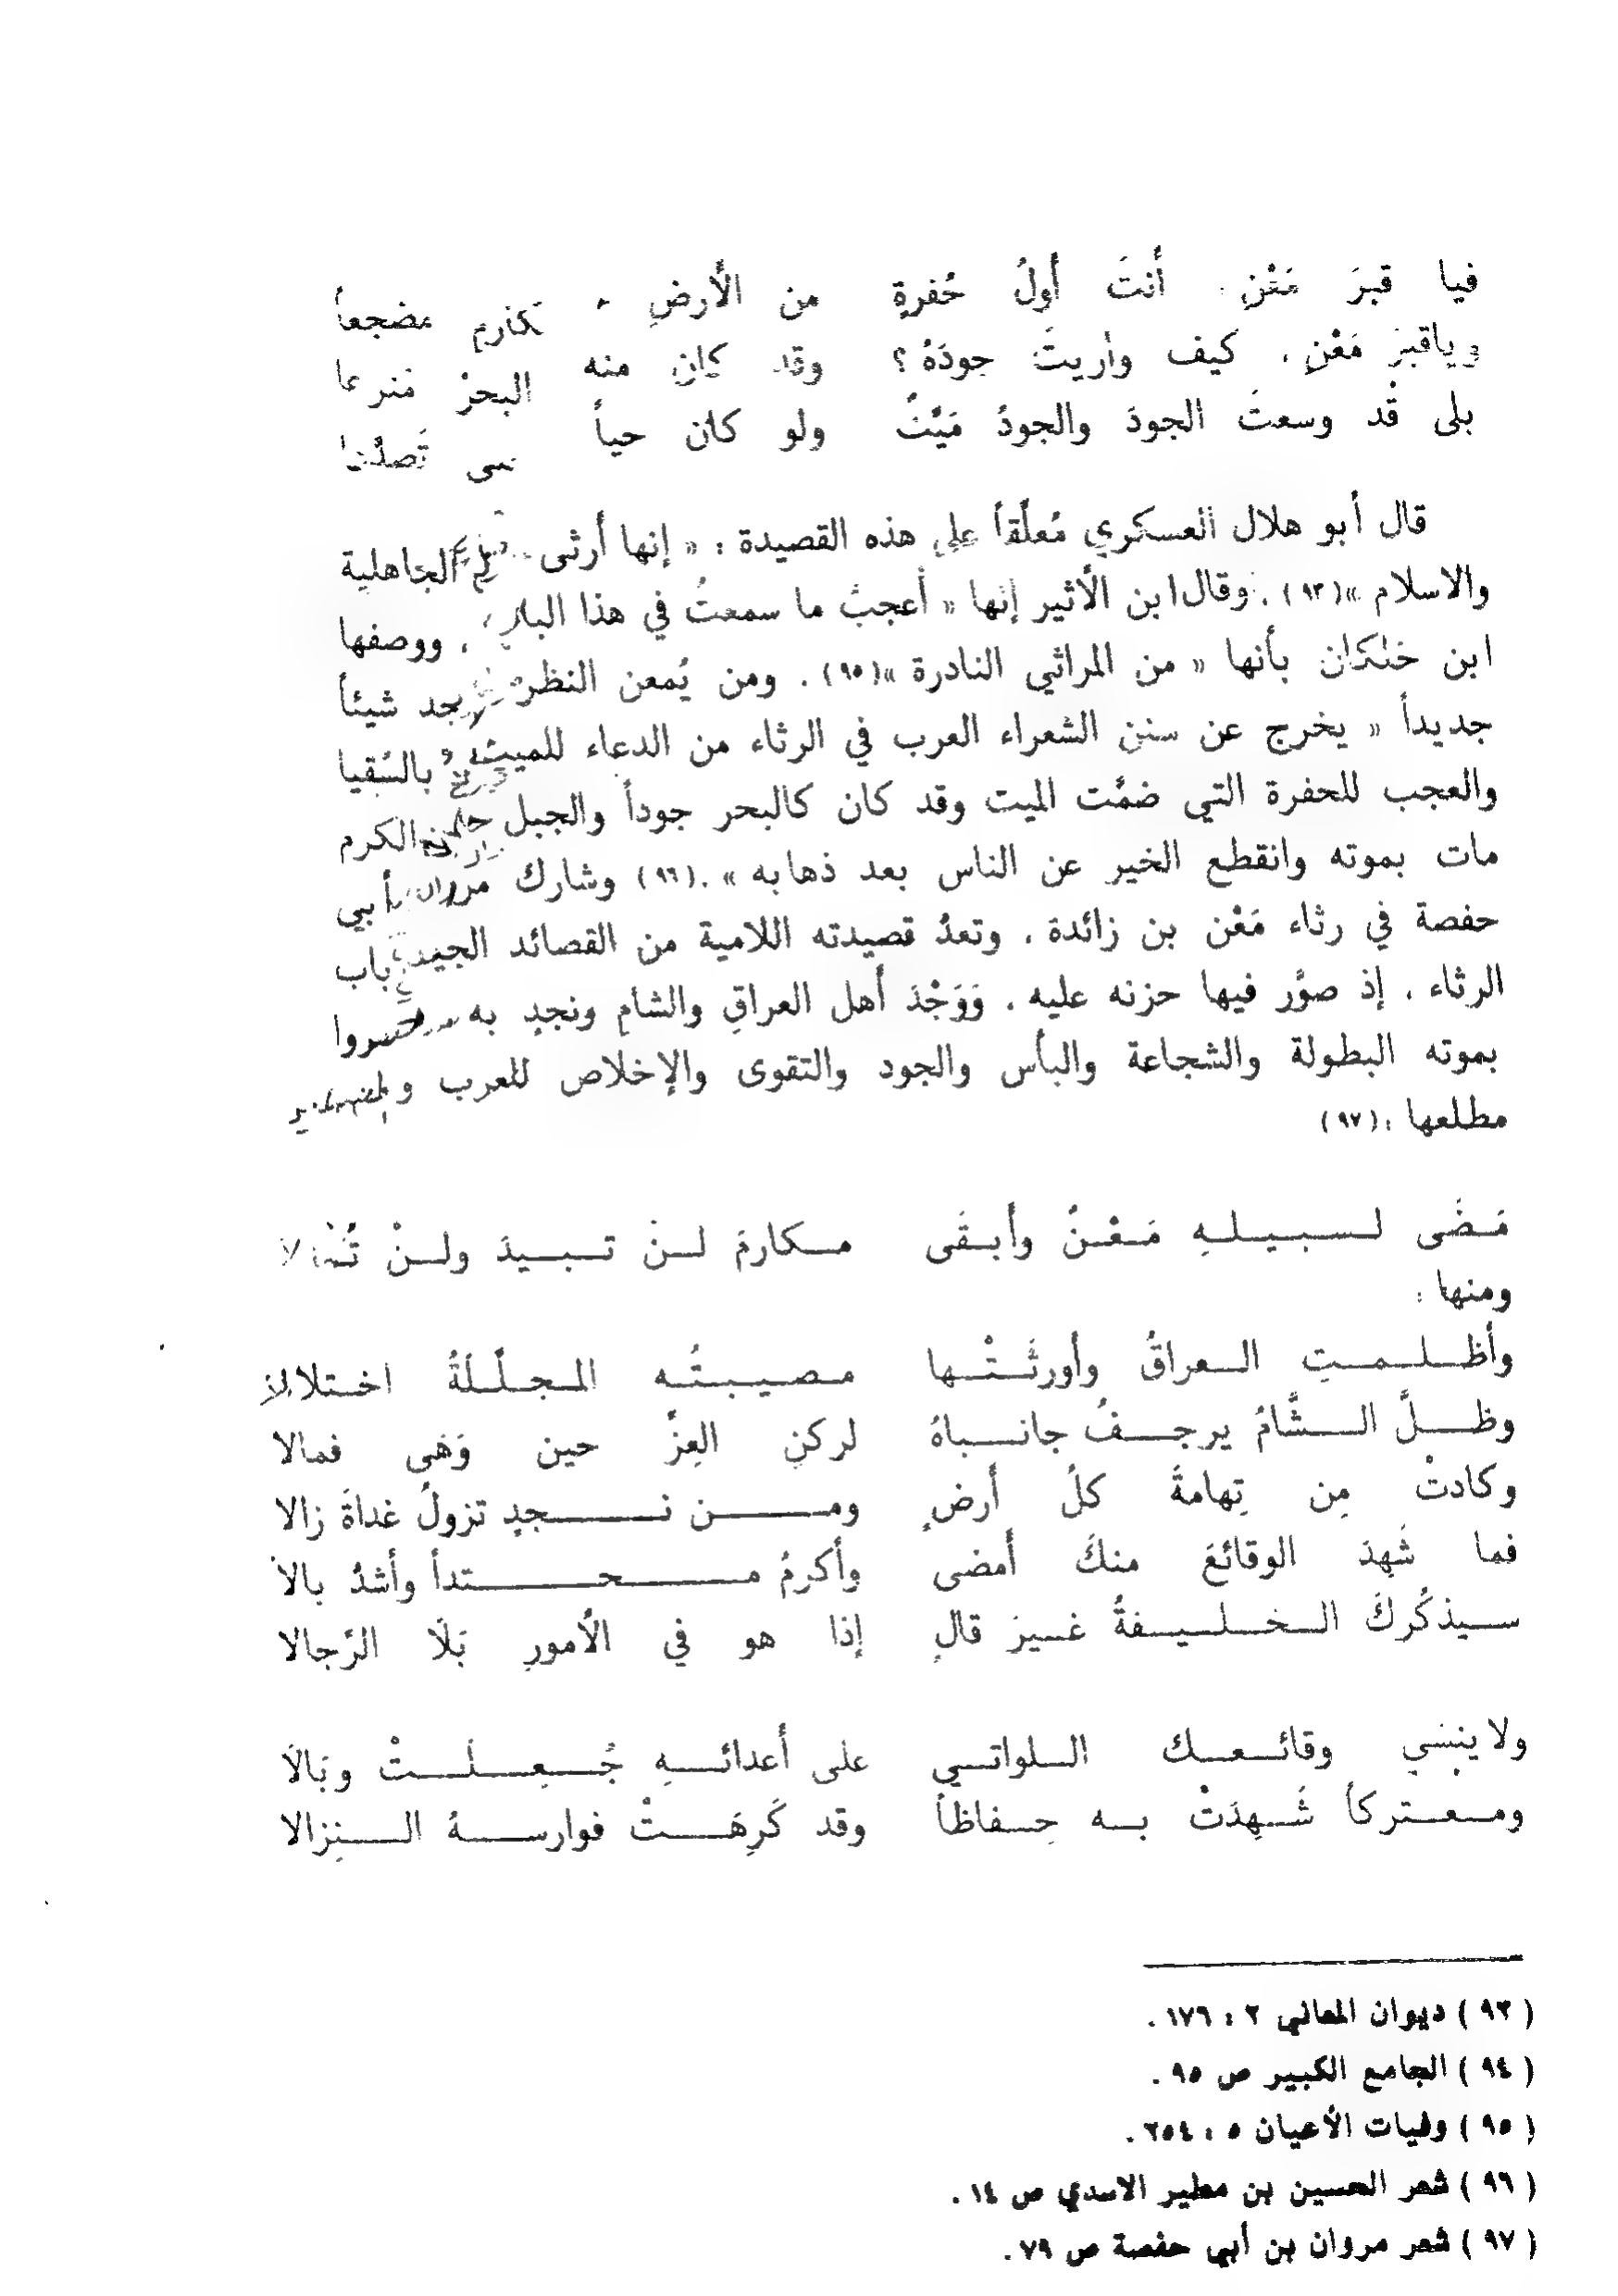 فيا قبرَ مَعْنٍ . أَنتَ أَولُ حُفرةٍ من الأَرضِ مضجعاً
وياقبرَ مَعْنٍ . كيف واريتَ جودَهُ ؟ وقد كان منه البحرُ
بلى قَد وسعتَ الجودَ والجودُ مَيِّتٌ ولو كان حياً
قال أبو هلال العسكري مُعلّقاً على هذه القصيدة : « إنها أرثى الجاهلية
والاسلام »(٩٣) . وقال ابن الأثير إنها « أعجبُ ما سمعتُ في هذا ووصفها
ابن خلكان بأنها « من المراثي النادرة »(٩٥) . ومن يُمعن النظر يجد شيئاً
جديداً « يخرج عن سنن الشعراء العرب في الرثاء من الدعاء للميت بالسُقيا
والعجب للحفرة التي ضمّت الميت وقد كان كالبحر جوداً والجبل الكرم
مات بموته وانقطع الخير عن الناس بعد ذهابه » .(٩٦) وشارك مروان أبي
حفصة في رثاء مَعْن بن زائدة . وتعدُ قصيدته اللامية من القصائد باب
الرثاء . إذ صوّر فيها حزنه عليه . وَوَجْدَ أهل العراقِ والشامِ ونجدٍ به
بموته البطولة والشجاعة والبأس والجود والتقوى والإخلاص للعرب
مطلعها :(٩٧)
مَـضَى لـسـبـيـلـهِ مَـعْـنٌ وأبـقَى مـكارمَ لـنْ تـبـيدَ ولـنْ
ومنها :
وأظـلـمـتِ الـعراقُ وأورثَـتْـها مـصـيـبـتُـه المـجـلّـلةُ اخـتلالا
وظـلَّ الـشَّامُ يرجـفُ جانـباهُ لركنِ العِزِّ حين وَهَى فمالا
وكادتْ مِن تِهامةَ كلُ أرضٍ ومـن نـجدٍ تزولُ غداةَ زالا
فما شَهِدَ الوقائعَ منكَ أمضى وأكرمُ مـحـتداً وأشدُ بالا
سـيذكُركَ الـخـلـيـفةُ غـيرَ قالٍ إذا هو في الأمورِ بَلَا الرّجالا
ولا ينسَي وقائـعـك الـلواتـي على أعدائـهِ جُـعِـلَـتْ وبَالَا
ومـعـتركاً شَـهِدَتْ بـه حِـفاظاً وقد كَرِهَـتْ فوارسـهُ الـنِزالا
( ٩٣ ) ديوان المعاني ٢ : ١٧٦ .
( ٩٤ ) الجامع الكبير ص ٩٥ .
( ٩٥ ) وفيات الأعيان ٥ : ٢٥٤ .
( ٩٦ ) شعر الحسين بن مطير الاسدي ص ١٤ .
( ٩٧ ) شعر مروان بن أبي حفصة ص ٧٩ .